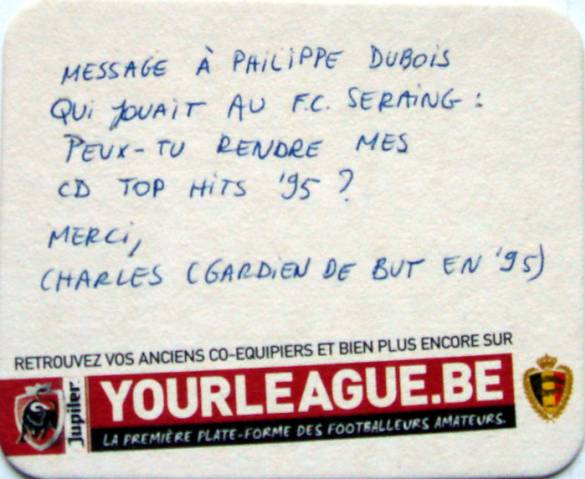 MESSAGE À PHILIPPE DUBOIS
QUI JOUAIT AU F.C. SERAING :
PEUX-TU RENDRE MES
CD TOP HITS '95 ?
MERCI,
CHARLES (GARDIEN DE BUT EN '95)
RETROUVEZ VOS ANCIENS CO-EQUIPIERS ET BIEN PLUS ENCORE SUR
Jupiler
YOURLEAGUE.BE
LA PREMIÈRE PLATE-FORME DES FOOTBALLEURS AMATEURS.